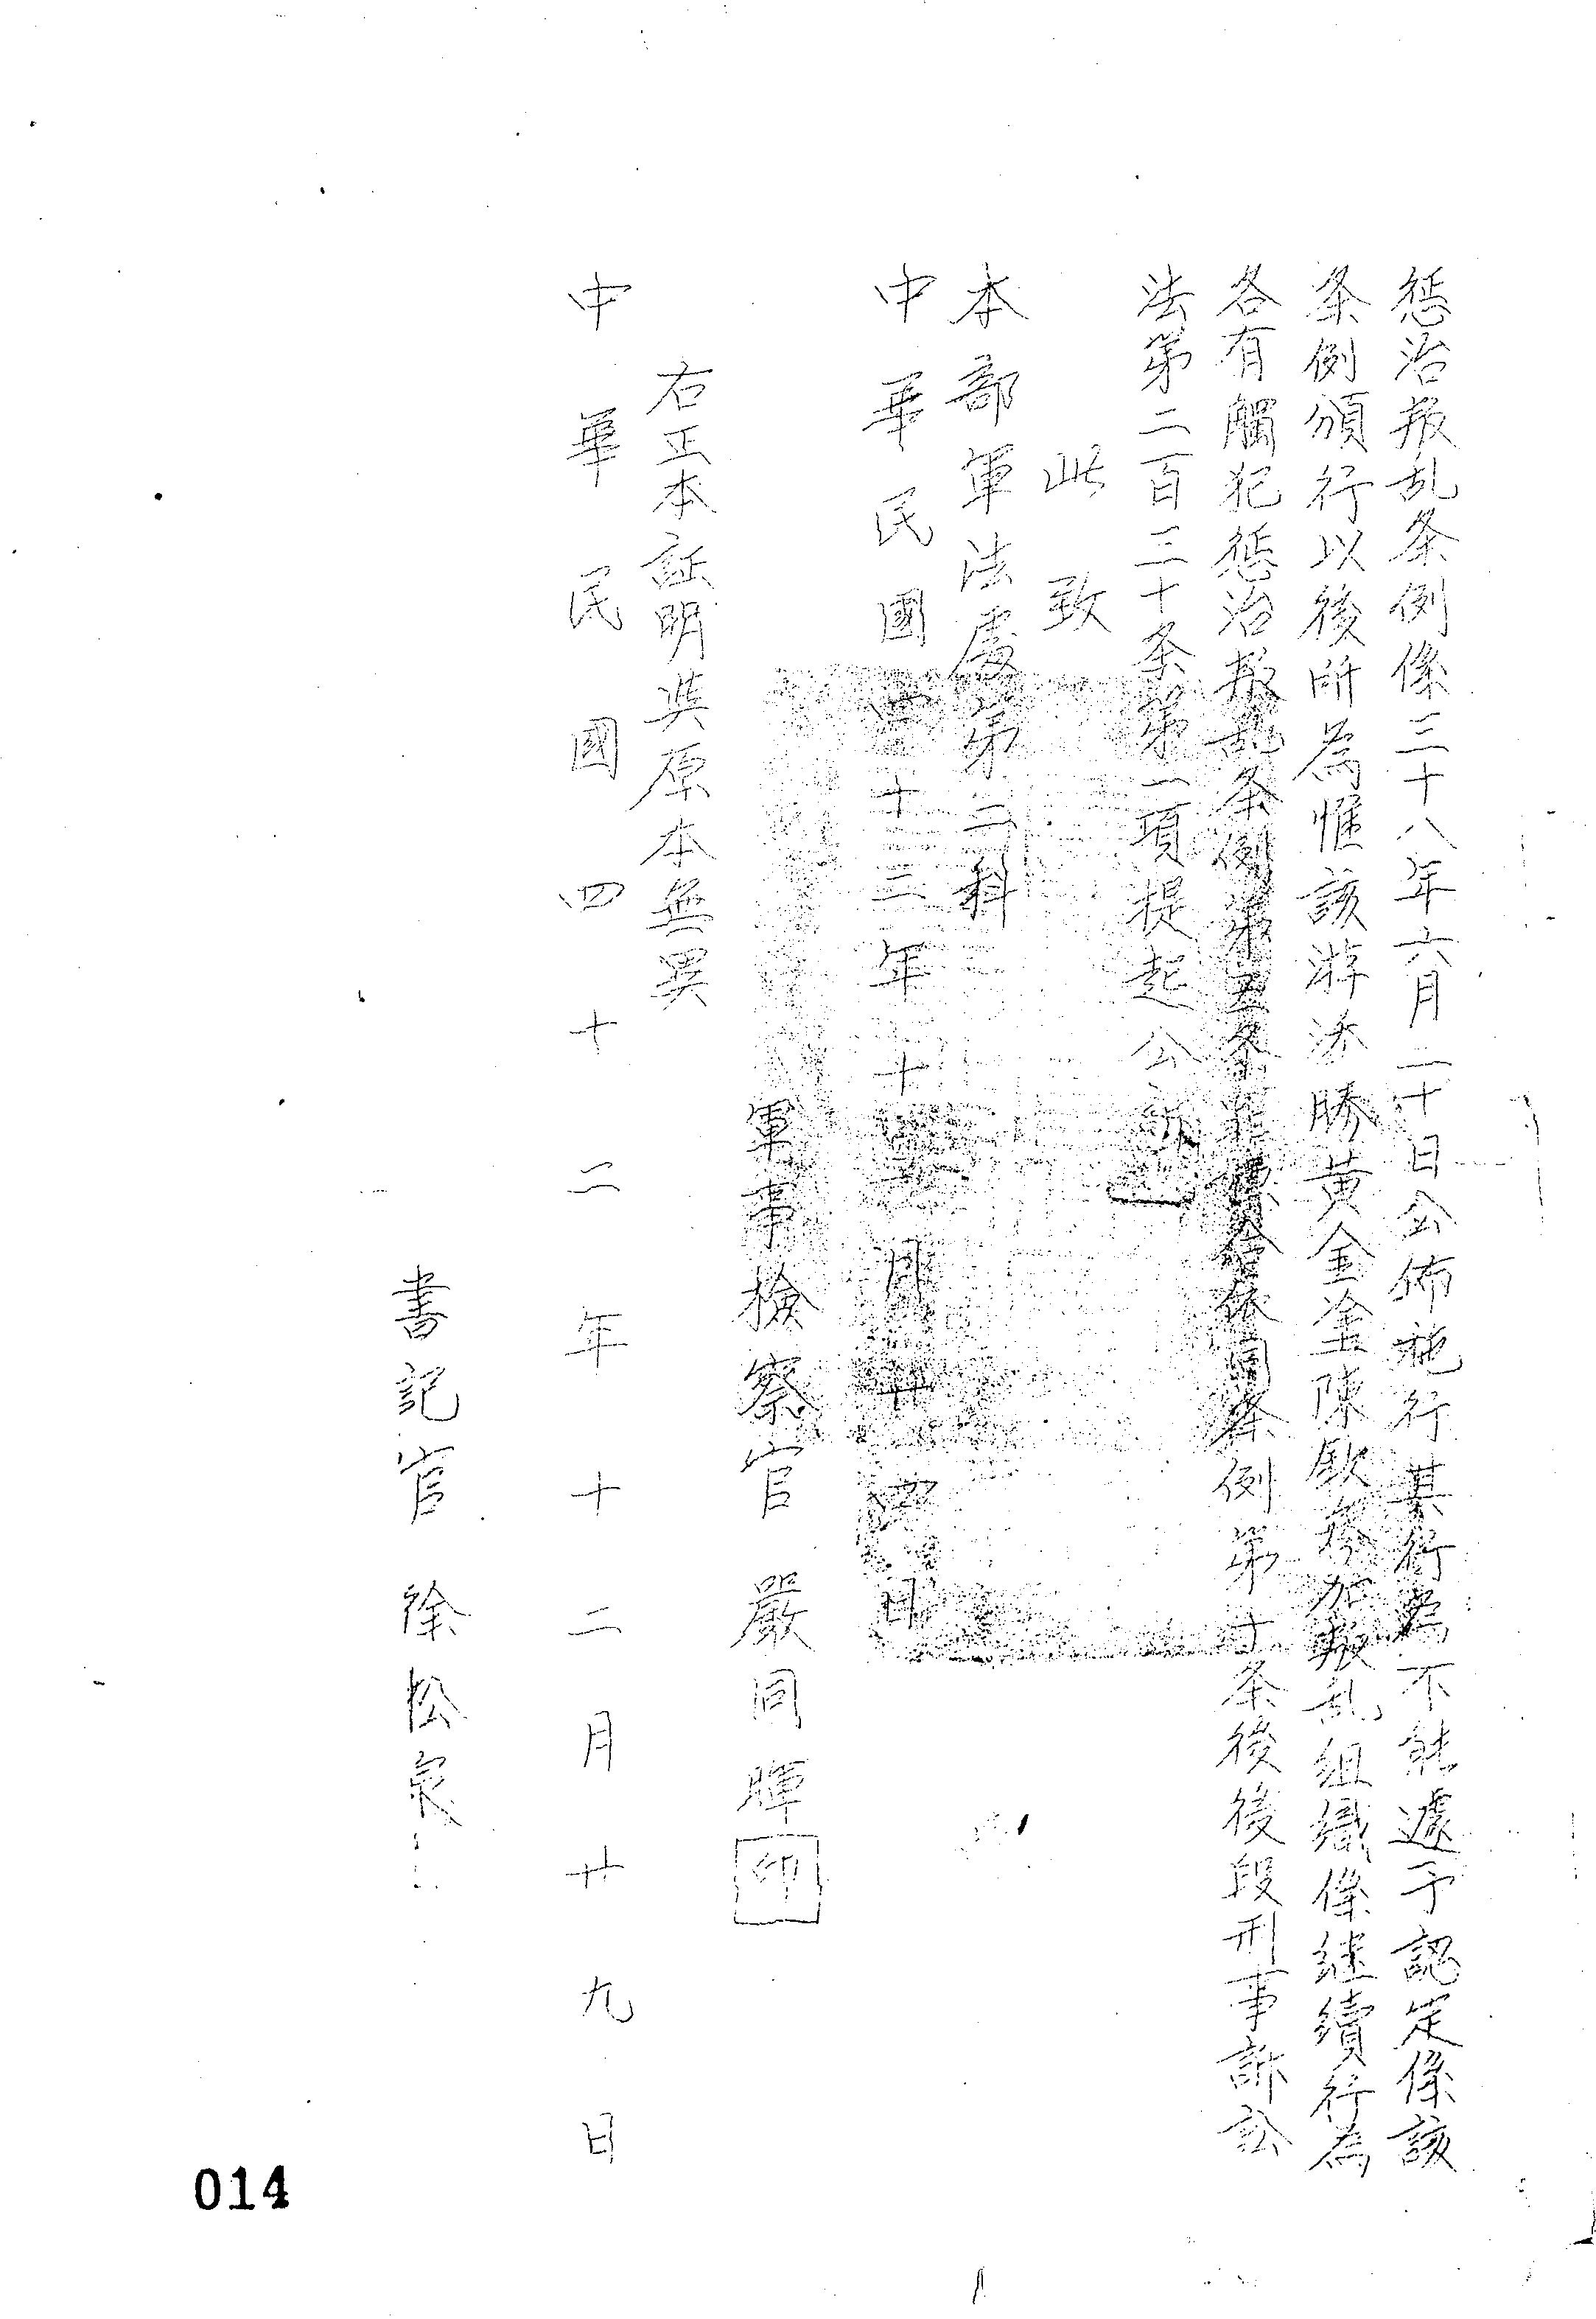 惩治叛乱条例係三十八年六月二十日公佈施行其行為不能遽予認定係該
条例頒行以後所為惟該游添勝黃金塗陳欽參加叛乱組織係継續行為
各有觸犯惩治叛乱条例第五条罪嫌合依同条例第十条後後段刑事訴訟
法第二百三十条第一項提起公訴
此致
本部軍法處第二科
中華民國四十二年十二月廿四日
軍事檢察官嚴同暉印
右正本証明與原本無異
中華民國四十二年十二月廿九日
書記官徐松泉
014